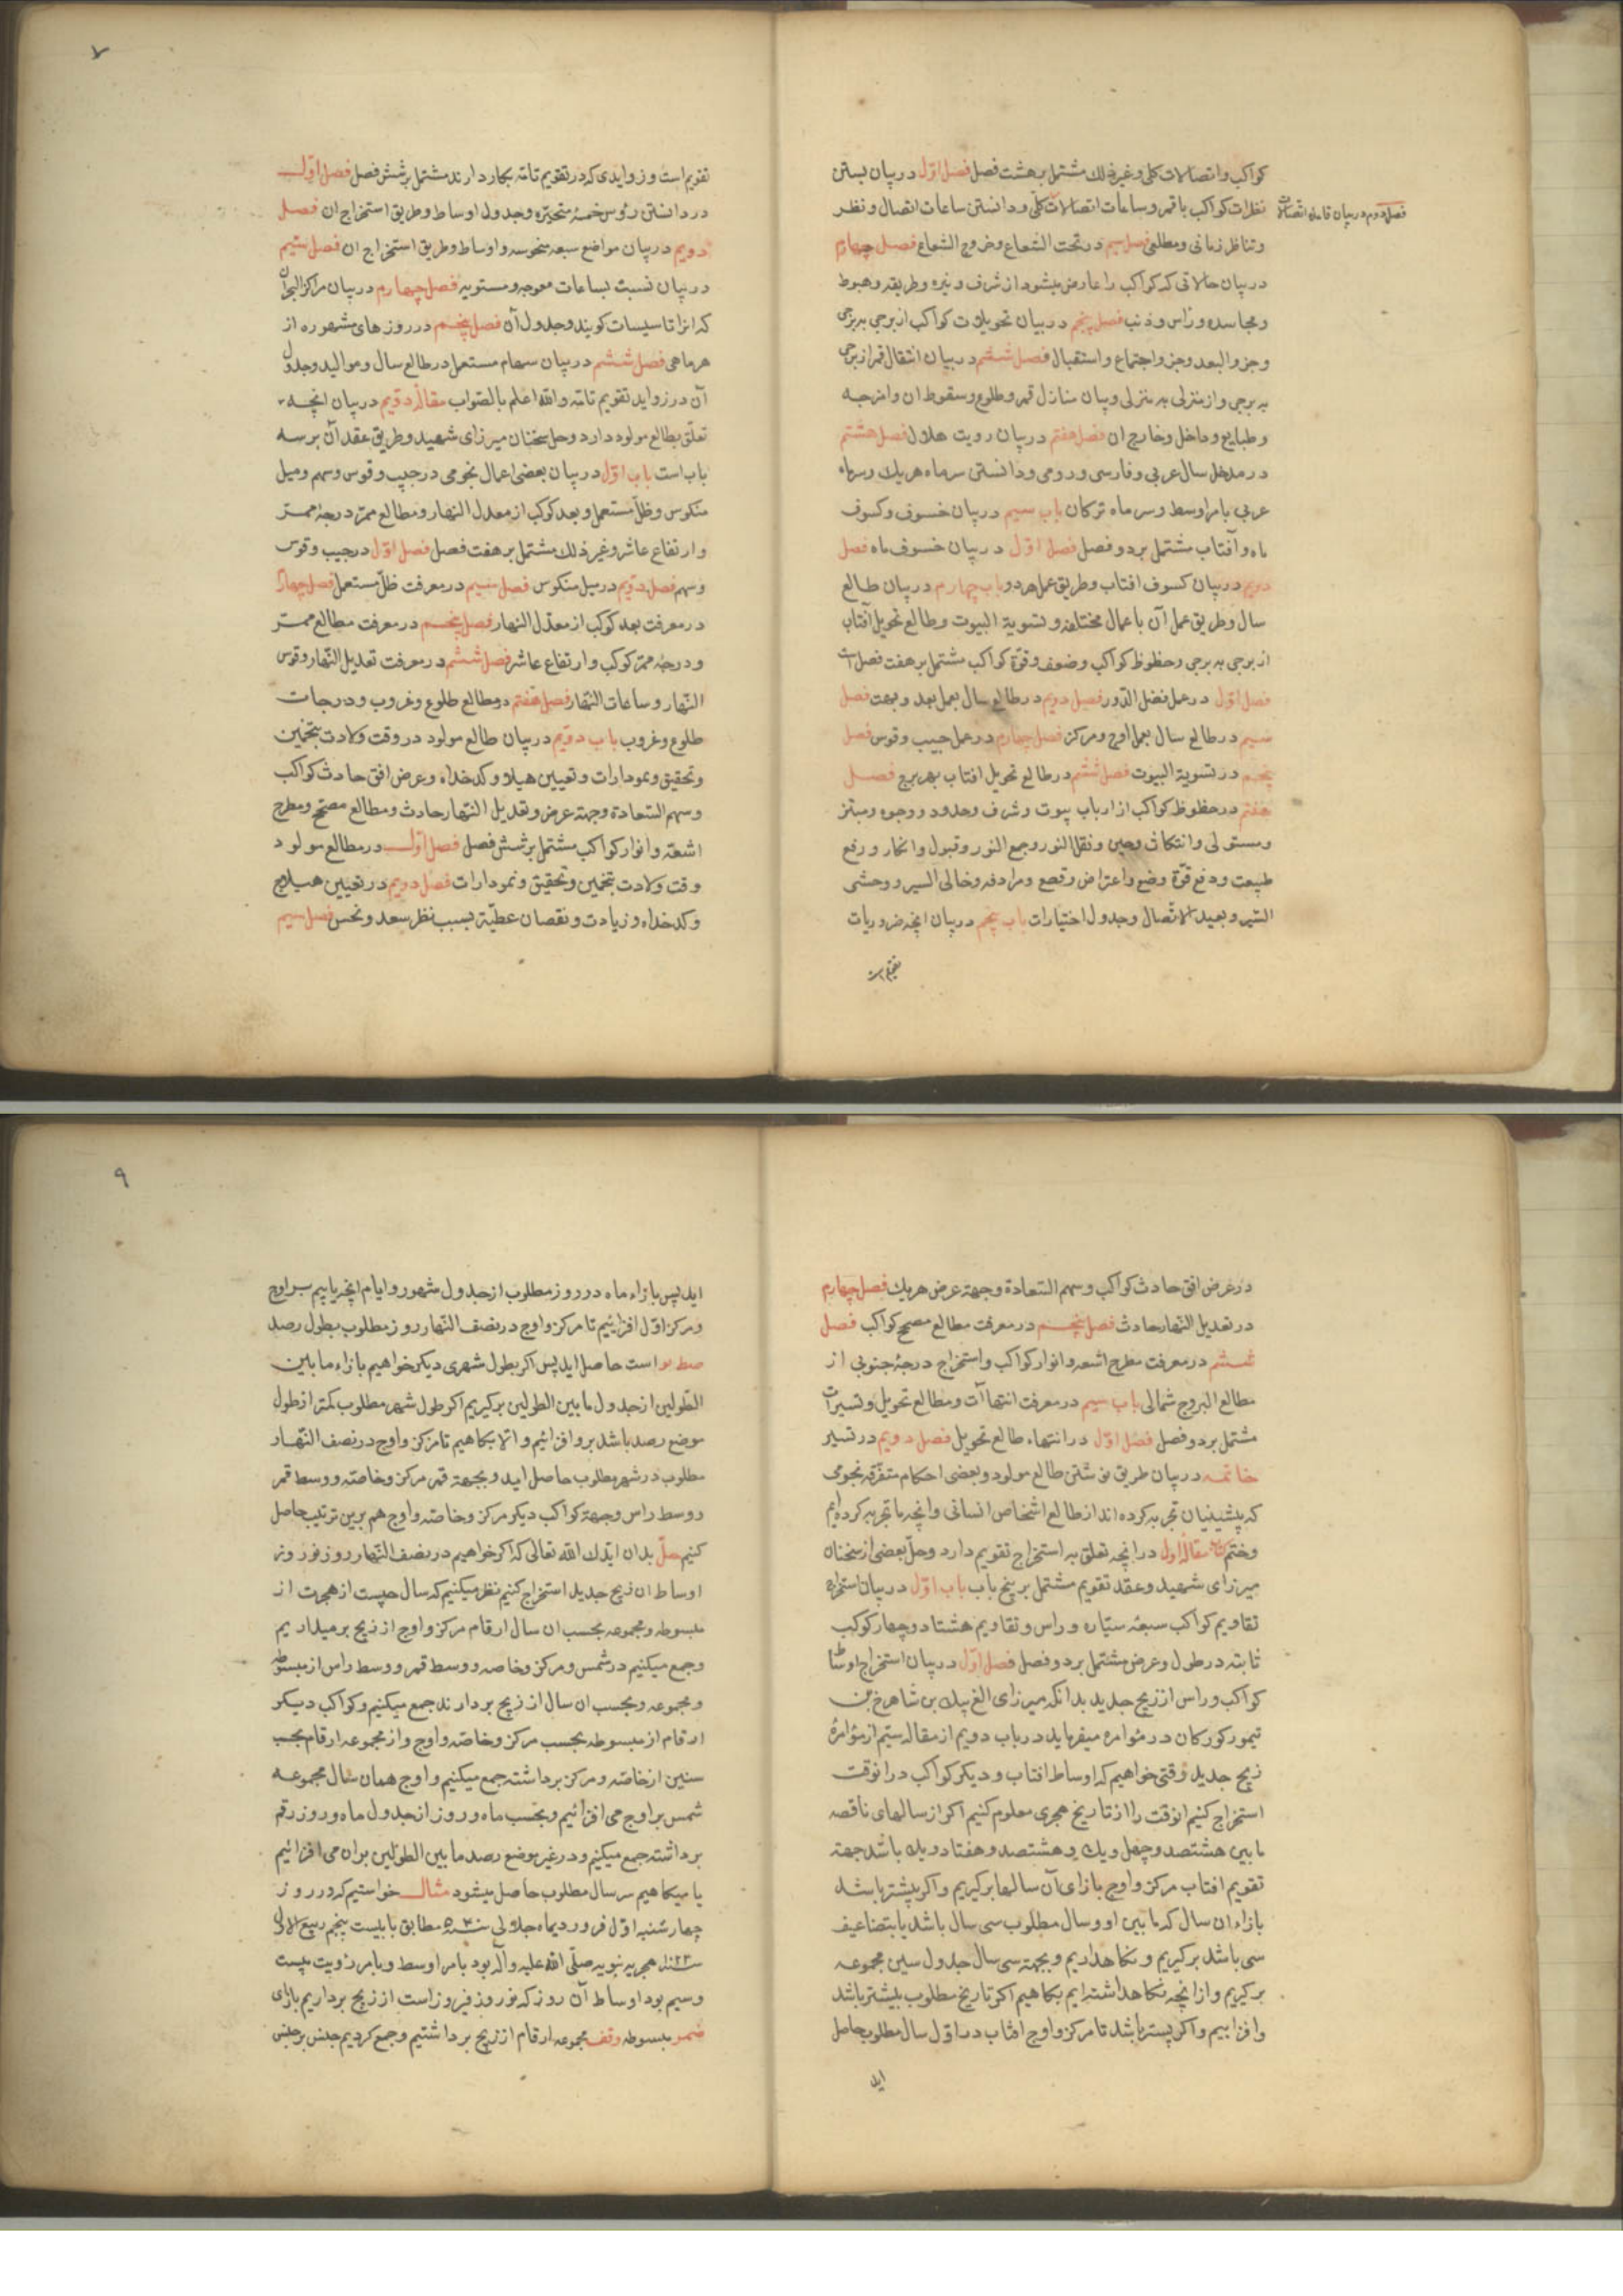 کواکب و اتصالات کلی و غیر ذلك مشتمل بر هشت فصل فصل اوّل در بیان بستن
نظرات کواکب با قمر و ساعات اتصالات کلّی و دانستن ساعات اتصال و نظر
فصل دوم در بیان قاعده اتصالات
و تناظر زمانی و مطلعی فصل سیم در تحت الشعاع و خروج الشعاع فصل چهارم
در بیان حالاتی که کواکب را عارض میشود از شرف و نیره و طریقه و هبوط
و مجاسده و راس و ذنب فصل پنجم در بیان تحویلات کواکب از برجی به برجی
و جزو البعد و جزو اجتماع و استقبال فصل ششم در بیان انتقال قمر از برجی
به برجی و از منزلی به منزلی و بیان منازل قمر و طلوع و سقوط ان و امزجه
و طبایع و داخل و خارج ان فصل هفتم در بیان رویت هلال فصل هشتم
در مدخل سال عربی و فارسی و رومی و دانستن سر ماه هر یك و سر ماه
عربی بامر اوسط و سر ماه ترکان باب سیم در بیان خسوف و کسوف
ماه و آفتاب مشتمل بر دو فصل فصل اوّل در بیان خسوف ماه فصل
دویم در بیان کسوف افتاب و طریق عمل هر دو باب چهارم در بیان طالع
سال و طریق عمل آن باعمال مختلفه و تسویة البیوت و طالع تحویل آفتاب
از برجی به برجی و حظوظ کواکب و ضعف و قوّة کواکب مشتمل بر هفت فصل است
فصل اوّل در عمل فضل الدّور فصل دویم در طالع سال بعمل بعد و بهت فصل
سیم در طالع سال بعمل اوج و مرکز فصل چهارم در عمل جیب و قوس فصل
پنجم در تسویة البیوت فصل ششم در طالع تحویل افتاب بهر برج فصل
هفتم در حظوظ کواکب از ارباب بیوت و شرف و حدود و وجوه و مبتز
و مستولی و انتکاث و حیز و نقل النور و جمع النور و قبول و انکار و رفع
طبیعت و دفع قوّة وضع و اعتراض و قصع و مرادفه و خالی السیر و وحشی
السّیر و بعید الاتّصال و جدول اختیارات باب پنجم در بیان انچه ضروریات
تقویم است
۷
تقویم است و زوایدی که در تقویم تامّه بکار دارند مشتمل بر شش فصل فصل اوّل
در دانستن رؤس خمسهٔ متحیّره و جدول اوساط و طریق استخراج ان فصل
دویم در بیان مواضع سبعه منحوسه و اوساط و طریق استخراج ان فصل سیم
در بیان نسبت ساعات معوجه و مستویه فصل چهارم در بیان مراکز البحران
که انرا تاسیسات کویند و جدول آن فصل پنجم در روز های مشهوره از
هر ماهی فصل ششم در بیان سهام مستعمل در طالع سال و موالید و جدول
آن در زواید تقویم تامّه والله اعلم بالصّواب مقالهٔ دویم در بیان انچه
تعلّق بطالع مولود دارد و حل سخنان میرزای شهید و طریق عقد آن بر سه
باب است باب اوّل در بیان بعضی اعمال نجومی در جیب و قوس و سهم و میل
منکوس و ظلّ مستعمل و بعد کوکب از معدل النهار و مطالع ممرّ و درجهٔ ممر
و ارتفاع عاشر و غیر ذلك مشتمل بر هفت فصل فصل اوّل در جیب و قوس
و سهم فصل دویم در میل منکوس فصل سیم در معرفت ظلّ مستعمل فصل چهارم
در معرفت بعد کوکب از معدّل النهار فصل پنجم در معرفت مطالع ممر
و درجهٔ ممرّ کوکب و ارتفاع عاشر فصل ششم در معرفت تعدیل النّهار و قوس
النّهار و ساعات النّهار فصل هفتم در مطالع طلوع و غروب و درجات
طلوع و غروب باب دویم در بیان طالع مولود در وقت ولادت بتخمین
و تحقیق و نمودارات و تعیین هیلاج و کدخداه و عرض افق حادث کواکب
و سهم السّعادة و جهة عرض و تعدیل النّهار حادث و مطالع مصحّح و مطرح
اشعّه و انوار کواکب مشتمل بر شش فصل فصل اوّل در مطالع مولود
وقت ولادت بتخمین و تحقیق و نمودارات فصل دویم در تعیین هیلاج
و کدخداه و زیادت و نقصان عطیّه بسبب نظر سعد و نحس فصل سیم
در عرض افق حادث کواکب و سهم السّعادة و جهة عرض هر یك فصل چهارم
در تعدیل النّهار حادث فصل پنجم در معرفت مطالع مصحّح کواکب فصل
ششم در معرفت مطرح اشعه و انوار کواکب و استخراج درجهٔ جنوبی از
مطالع البروج شمالی باب سیم در معرفت انتهاآت و مطالع تحویل و تسیرات
مشتمل بر دو فصل فصل اوّل در انتهاء طالع تحویل فصل دویم در تسیر
خاتمه در بیان طریق نوشتن طالع مولود و بعضی احکام متفرّقه نجومی
که پیشینیان تجربه کرده اند از طالع اشخاص انسانی و انچه ما تجربه کرده ایم
و ختم کتاب مقالهٔ اول در انچه تعلق به استخراج تقویم دارد و حلّ بعضی از سخنان
میرزای شهید و عقد تقویم مشتمل بر پنج باب باب اوّل در بیان استخراج
تقاویم کواکب سبعهٔ سیّاره و راس و تقاویم هشتاد و چهار کوکب
ثابته در طول و عرض مشتمل بر دو فصل فصل اوّل در بیان استخراج اوساط
کواکب و راس از زیج جدید بدانکه میرزای الغ بیك بن شاهرخ بن
تیمور کورکان در مؤامره میفرماید در باب دویم از مقاله سیّم از مؤامرهٔ
زیج جدید وقتی خواهیم که اوساط افتاب و دیکر کواکب در انوقت
استخراج کنیم انوقت را از تاریخ هجری معلوم کنیم اکر از سالهای ناقصه
ما بین هشتصد و چهل و یك و هشتصد و هفتاد و یك باشد جهة
تقویم افتاب مرکز و اوج بازای آن سالها برکیریم و اکر پیشتر باشد
بازاء ان سال که ما بین او و سال مطلوب سی سال باشد یا بتضاعیف
سی باشد برکیریم و نکاهداریم و بجهة سی سال جدول سنین مجموعه
برکیریم و از انچه نکاهداشته ایم بکاهیم اکر تاریخ مطلوب بیشتر باشد
و افزاییم و اکر پستر باشد تا مرکز و اوج افتاب در اوّل سال مطلوب حاصل
اید
۹
اید پس بازاء ماه در روز مطلوب از جدول شهور و ایام انچه یابیم بر اوج
و مرکز اوّل افزائیم تا مرکز و اوج در نصف النّهار روز مطلوب بطول رصد
است حاصل اید پس اکر بطول شهری دیکر خواهیم بازاء ما بین
الطّولین از جدول ما بین الطولین برکیریم اکر طول شهر مطلوب کمتر از طول
موضع رصد باشد بر و افزائیم و الّا بکاهیم تا مرکز و اوج در نصف النّهار
مطلوب در شهر مطلوب حاصل اید و بجهة قمر مرکز و خاصّه و وسط قمر
و وسط راس و جهة کواکب دیکر مرکز و خاصّه و اوج هم برین ترتیب حاصل
کنیم حلّ بدان ایّدك الله تعالی که اکر خواهیم در نصف النّهار روز نوروز
اوساط ان زیج جدید استخراج کنیم نظر میکنیم که سال چیست از هجرت از
مبسوطه و مجموعه بحسب ان سال ارقام مرکز و اوج از زیج برمیداریم
و جمع میکنیم در شمس و مرکز و خاصه و وسط قمر و وسط راس از مبسوطه
و مجموعه و بحسب ان سال از زیج بردارند جمع میکنیم و کواکب دیکر
ارقام از مبسوطه بحسب مرکز و خاصّه و اوج و از مجموعه ارقام بحسب
سنین از خاصّه و مرکز برداشته جمع میکنیم و اوج همان سال مجموعه
شمس بر اوج می افزائیم و بحسب ماه و روز از جدول ماه و روز رقم
برداشته جمع میکنیم و در غیر موضع رصد ما بین الطولین بران می افزائیم
یا میکاهیم سر سال مطلوب حاصل میشود مثال خواستیم که در روز
چهارشنبه اوّل فروردیماه جلالی مطابق با بیست پنجم ربیع الاول
هجریه نبویه صلّی الله علیه و آله بود بامر اوسط و بامر رؤیت بیست
و سیم بود اوساط آن روز که نوروز فیروز است از زیج برداریم بازای
مبسوطه مجموعه ارقام از زیج برداشتیم و جمع کردیم جنس بر جنس